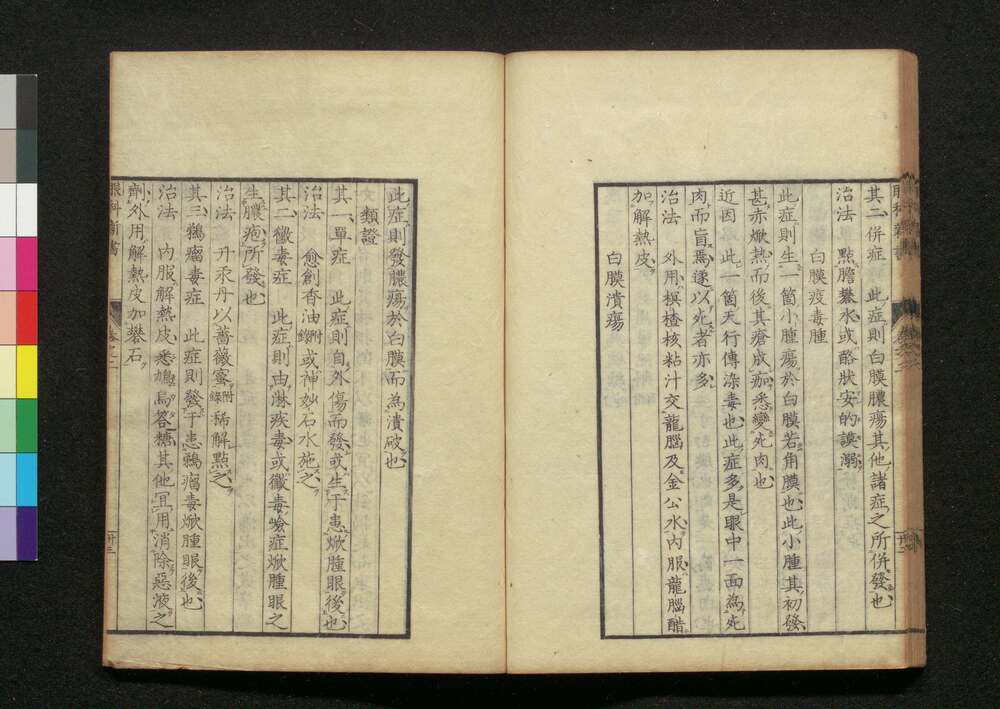 其二併症 此症則白膜膿瘍其他諸症之所併發也
治法 點膽礬水或酪狀安的謨溺
白膜疫毒腫
此症則生一箇小腫瘍於白膜若角膜也此小腫其初發
甚赤焮熱而後其瘡成痂悉變死肉也
近因 此一箇天行傳染毒也此症多是眼中一面為死
肉而盲焉遂以死者亦多
治法 外用榠樝核粘汁交龍腦及金公水內服龍腦醋
加解熱皮
白膜潰瘍
此症則發膿瘍於白膜而為潰破也
類證
其一單症 此症則自外傷而發或生于患焮腫眼後也
治法 愈創香油附錄或神妙石水施之
其二黴毒症 此症則由淋疾毒或黴毒嶮症焮腫眼之
生膿疱所發也
治法 丹汞丹以薔薇蜜附錄稀解點之
其三鶸瘤毒症 此症則發于患鶸瘤毒焮腫眼後也
治法 內服解熱皮悉鳩烏答糖其他宜用消除惡液之
劑外用解熱皮加礬石
眼科新書 卷之二 廿三